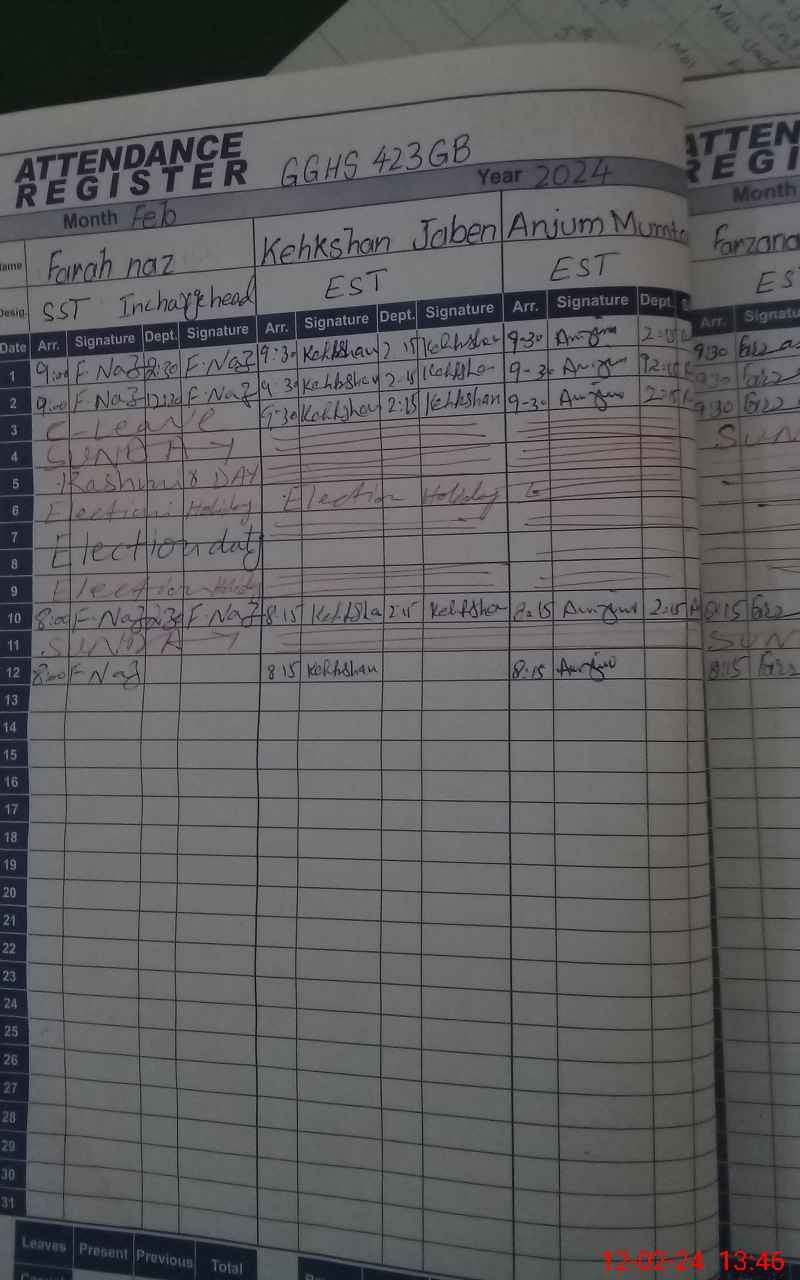 ATTENDANCE REGISTER GGHS 423GB
Month Feb Year 2024
Name Farah naz Kehkshan Jaben Anjum Mumta
Desig. SST Incharge head EST EST
Date Arr. Signature Dept. Signature Arr. Signature Dept. Signature Arr. Signature Dept. S
1 9:00 F.Naz 12:30 F.Naz 9:30 Kehkshan 2:15 Kehkshan 9-30 Anjum 2:15
2 9:00 F.Naz 12:30 F.Naz 9:30 Kehkshan 2:15 Kehkshan 9-30 Anjum 2:15
3 C-Leave 9:30 Kehkshan 2:15 Kehkshan 9-30 Anjum 2:15
4 SUNDAY
5 Kashmir DAY
6 Election Holiday Election Holiday
7
8 Election day
9 Election Holiday
10 8:00 F.Naz 2:30 F.Naz 8:15 Kehksha 2:15 Kehkshan 8:15 Anjum 2:15
11 SUNDAY
12 8:00 F Naz 8:15 Kehkshan 8:15 Anjum
13
14
15
16
17
18
19
20
21
22
23
24
25
26
27
28
29
30
31
Leaves Present Previous Total
ATTEN
REGI
Month
Farzana
EST
Arr. Signatu
9:30
9:30
9:30
SUN
8:15
SUN
8:15
12-02-24 13:46